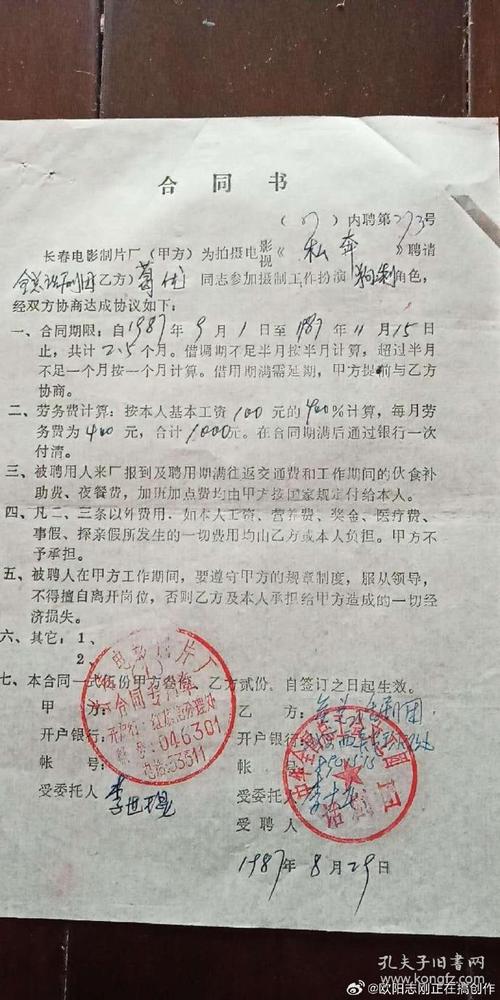 合同书
(87)内聘第273号
长春电影制片厂(甲方)为拍摄电影视《私奔》聘请
全总话剧团(乙方)葛优同志参加摄制工作扮演 角色,
经双方协商达成协议如下:
一、合同期限:自1987年9月1日至1987年11月15日
止,共计2.5个月。借调期不足半月按半月计算,超过半月
不足一个月按一个月计算。借用期满需延期,甲方提前与乙方
协商。
二、劳务费计算:按本人基本工资100元的400%计算,每月劳
务费为400元,合计1000元。在合同期满后通过银行一次
付清。
三、被聘用人来厂报到及聘用期满往返交通费和工作期间的伙食补
助费、夜餐费,加班加点费均由甲方按国家规定付给本人。
四、凡二、三条以外费用,如本人工资、营养费、奖金、医疗费、
事假、探亲假所发生的一切费用均由乙方或本人负担。甲方不
予承担。
五、被聘人在甲方工作期间,要遵守甲方的规章制度,服从领导,
不得擅自离开岗位,否则乙方及本人承担给甲方造成的一切经
济损失。
六、其它:1、
2、
七、本合同一式伍份甲方叁份,乙方贰份,自签订之日起生效。
甲方:
开户银行:
帐号:
受委托人
长春电影制片厂
合同专用章
开户行:红旗街办理处
帐号:046301
电话:53311
乙方:全总话剧团
开户银行:
帐号:
受委托人
受聘人
话剧团
1987年8月29日
孔夫子旧书网
@欧阳志刚正在搞创作